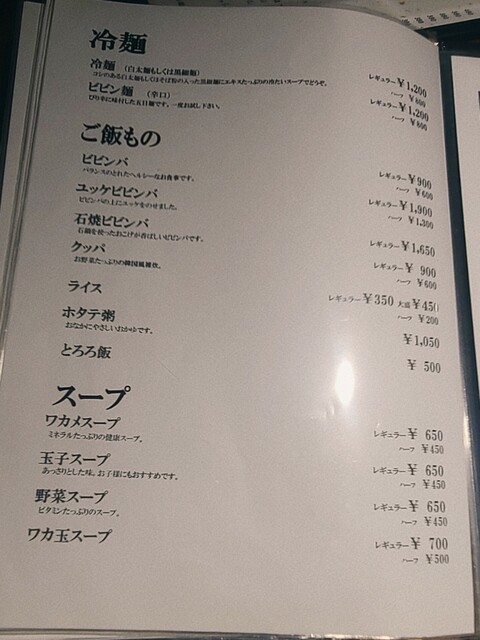 冷麺
冷麺 (白太麺もしくは黒細麺)
コシのある白太麺もしくはそば粉の入った黒細麺にエキスたっぷりの冷たいスープでどうぞ。
レギュラー ¥1,200
ハーフ ¥800
ビビン麺 (辛口)
ぴり辛に味付した五目麺です。一度お試し下さい。
レギュラー ¥1,200
ハーフ ¥800
ご飯もの
ビビンバ
バランスのとれたヘルシーなお食事です。
レギュラー ¥900
ハーフ ¥600
ユッケビビンバ
ビビンバの上にユッケをのせました。
レギュラー ¥1,900
ハーフ ¥1,300
石焼ビビンバ
石鍋を使ったおこげが香ばしいビビンバです。
レギュラー ¥1,650
クッパ
お野菜たっぷりの韓国風雑炊。
レギュラー ¥ 900
ハーフ ¥600
ライス
レギュラー ¥350 大盛 ¥450
ハーフ ¥200
ホタテ粥
おなかにやさしいおかゆです。
¥1,050
とろろ飯
¥ 500
スープ
ワカメスープ
ミネラルたっぷりの健康スープ。
レギュラー ¥ 650
ハーフ ¥450
玉子スープ
あっさりとした味。お子様にもおすすめです。
レギュラー ¥ 650
ハーフ ¥450
野菜スープ
ビタミンたっぷりのスープ。
レギュラー ¥ 650
ハーフ ¥450
ワカ玉スープ
レギュラー ¥ 700
ハーフ ¥500